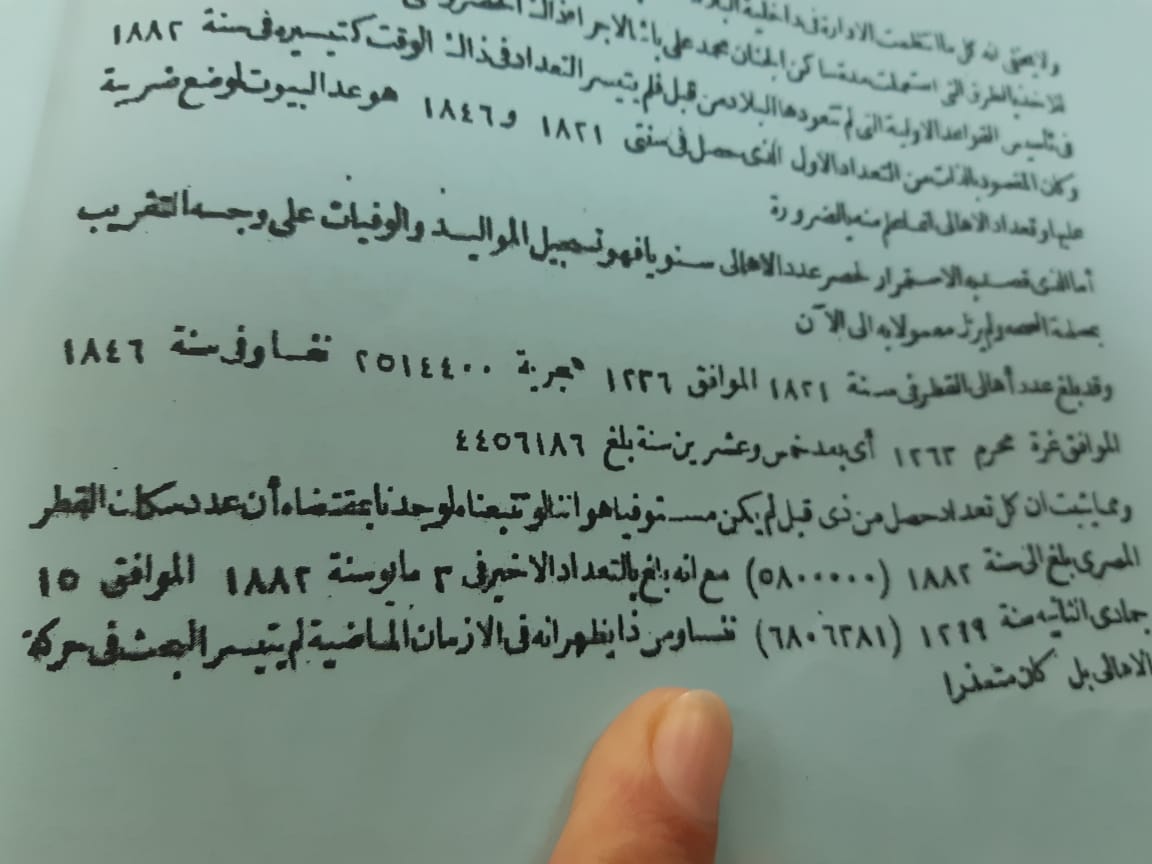 ولا يخفى انه كل ما انتظمت الادارة فى داخلية البلاد
فلاحذ بالطرق التى استعملت مدة ساكن الجنان محمد على باشا لاجراء ذاك
فى تأسيس القواعد الاولية التى لم تتعودها البلاد من قبل فلم يتيسر التعداد فى ذاك الوقت كتيسيره فى سنة ١٨٨٢
وكان المقصود بالذات من التعداد الاول الذى حصل فى سنتى ١٨٢١ و١٨٤٦ هو عد البيوت لوضع ضريبة
عليها وتعداد الاهالى انما علم منه بالضرورة
أما الذى قصد به الاستمرار لحصر عدد الاهالى سنويا فهو تسجيل المواليد والوفيات على وجه التقريب
بمصلحة الصحة ولم يزل معمولا به الى الآن
وقد بلغ عدد أهالى القطر فى سنة ١٨٢١ الموافق ١٢٣٦ هجرية ٢٥١٤٤٠٠ نفسا وفى سنة ١٨٤٦
الموافق غرة محرم ١٢٦٣ أى بعد خمس وعشرين سنة بلغ ٤٤٥٦١٨٦
ومما يثبت ان كل تعداد حصل من ذى قبل لم يكن مستوفيا هو اننا لو تتبعناه لوجدنا بمقتضاه أن عدد سكان القطر
المصرى بلغ الى سنة ١٨٨٢ (٥٨٠٠٠٠٠) مع انه بلغ بالتعداد الاخير فى ٣ مايو سنة ١٨٨٢ الموافق ١٥
جمادى الثانية سنة ١٢٩٩ (٦٨٠٦٣٨١) نفسا ومن ذا يظهر انه فى الازمان الماضية لم يتيسر البحث فى حركة
الاهالى بل كان متعذرا